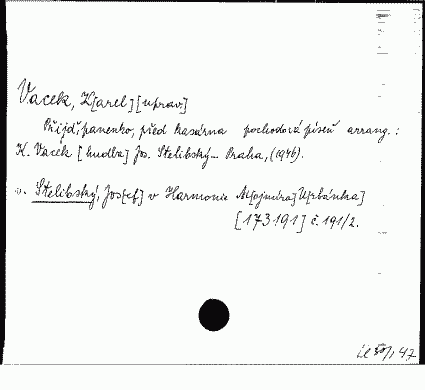 Vacek, K[arel] [uprav.]
Přijď, panenko, před kasárna pochodová píseň arrang.:
K. Vacek [hudba] Jos. Stelibský... Praha, (1946).
v. Stelibský, Jos[ef] v Harmonie Al[ojmíra] U[rbánka]
[173191] č. 191/2.
47